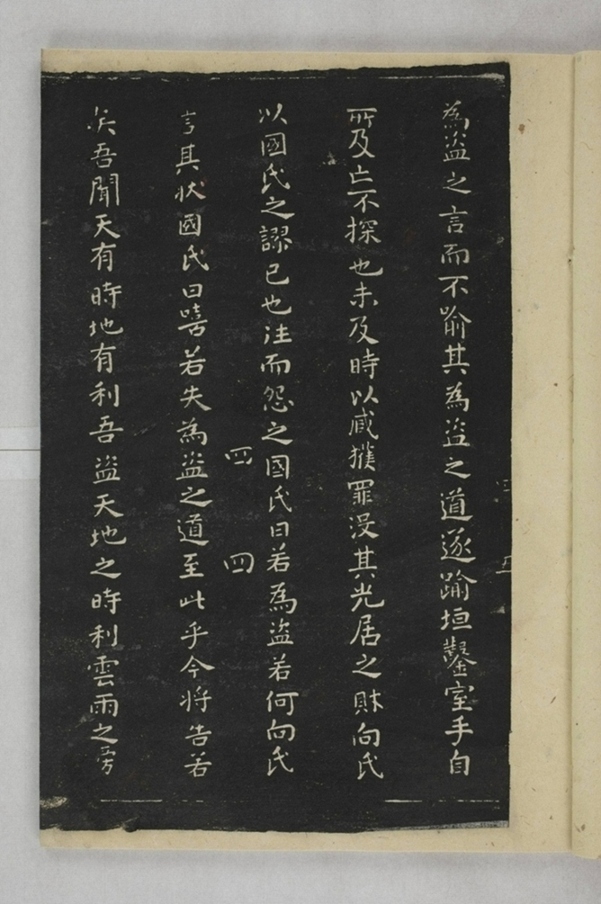 為盜之言而不喻其為盜之道遂踰垣鑿室手目
所及亡不探也未及時以臧獲罪沒其先居之財向氏
以國氏之謬己也往而怨之國氏曰若為盜若何向氏
言其狀國氏曰嘻若失為盜之道至此乎今將告若
矣吾聞天有時地有利吾盜天地之時利雲雨之滂
四 四